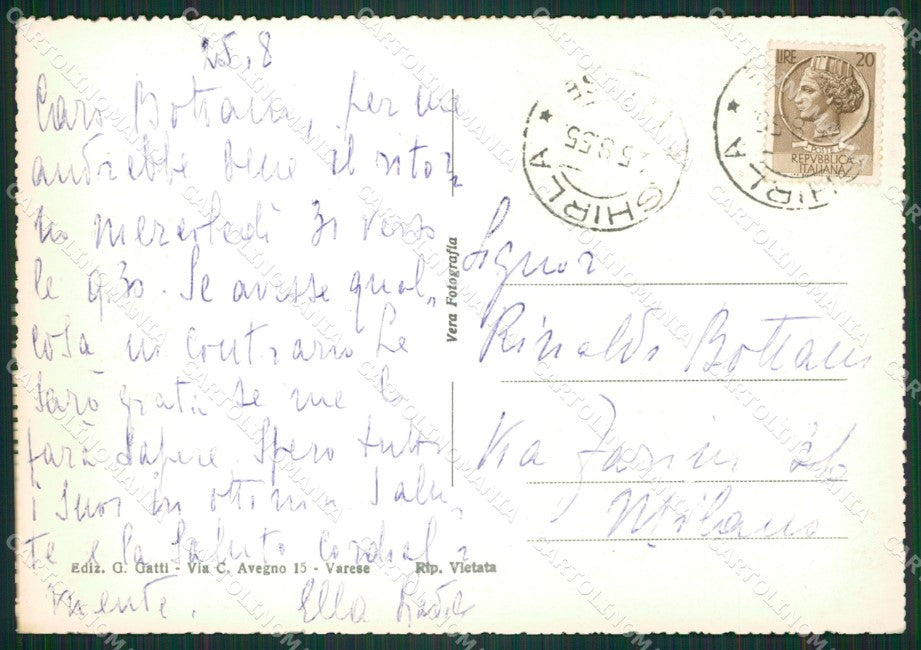 25.8
Caro Bottani, per me
andrebbe bene il ritor=
no mercoledì 31 verso
le 9,30. Se avesse qual=
cosa in contrario Le
sarò grata se me lo
farà sapere. Spero tutti
i suoi in ottima salu=
te e La saluto cordial=
mente. Ella
Vera Fotografia
Ediz. G. Gatti - Via C. Avegno 15 - Varese
Rip. Vietata
GHIRLA
25.8.55
GHIRLA
LIRE 20
POSTE
REPVBBLICA
ITALIANA
Signor
Rinaldo Bottani
Via
Milano
CARTOLINOMANIA